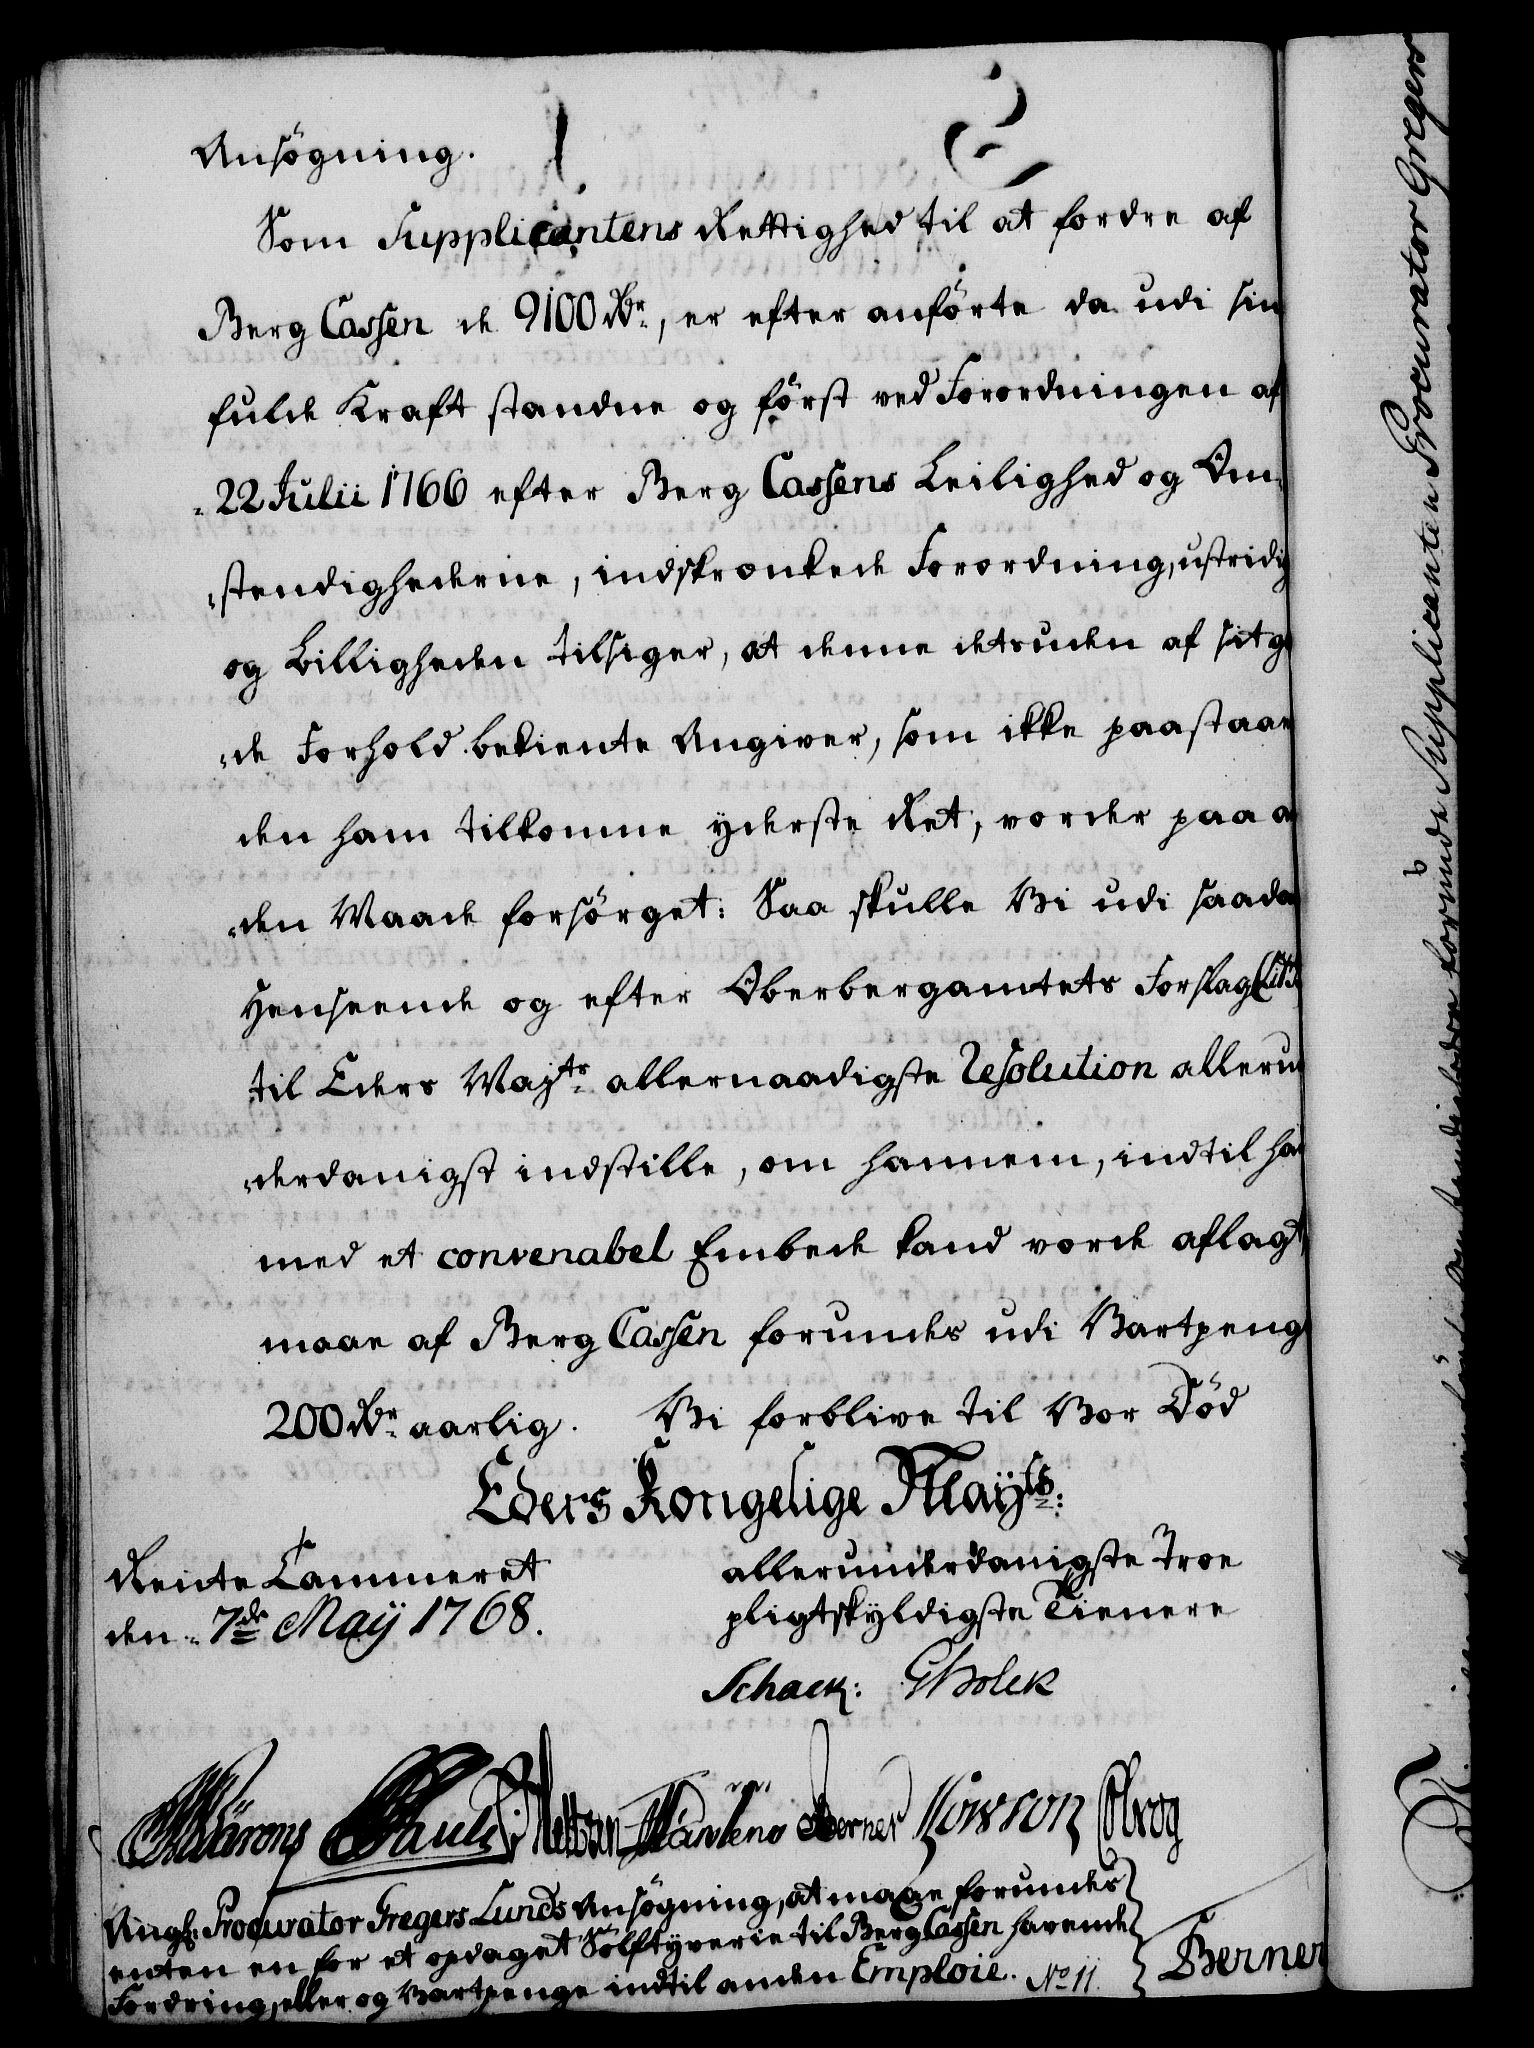 Ansøgning.
Som Supplicantens Rettighed til at fordre af
Berg Cassen de 9100 Rdr., er efter anførte da udi sin
fulde Kraft standne og først ved Forordningen af
22 Julii 1766 efter Berg Cassens Leilighed og Om-
stendighederne, indskrænkede Forordning, ustridig
og Billigheden tilsiger, at denne desuden af sit go
de Forhold bekiente Angiver, som ikke paastaar
den ham tilkomne yderste Ret, vorder paa an
den Maade forsørget: Saa skulle Vi udi saadan
Henseende og efter Oberbergamtets Forslag
til Eders Mayts. allernaadigste Resolution allerun
derdanigst indstille, om hannem, indtil han
med et convenabel Embede kand vorde aflagt,
maae af Berg Cassen forundes udi Vartpenge
200 Rdr. aarlig. Vi forblive til Vor Død
Eders Kongelige Mayts:
Rente Cammeret
den 7de May 1768.
allerunderdanigste Troe
pligtskyldigste Tienere
Schack:
Pauli Martens Berner Kowson
Angl: Procurator Gregers Lunds Ansøgning, at maae forundes
enten en for et opdaget Sølftyverie til Berg Cassen havende
Fordring, eller og Vartpenge indtil anden Emploie. No 11.
Berner
forunde Supplicanten Procurator Gregers